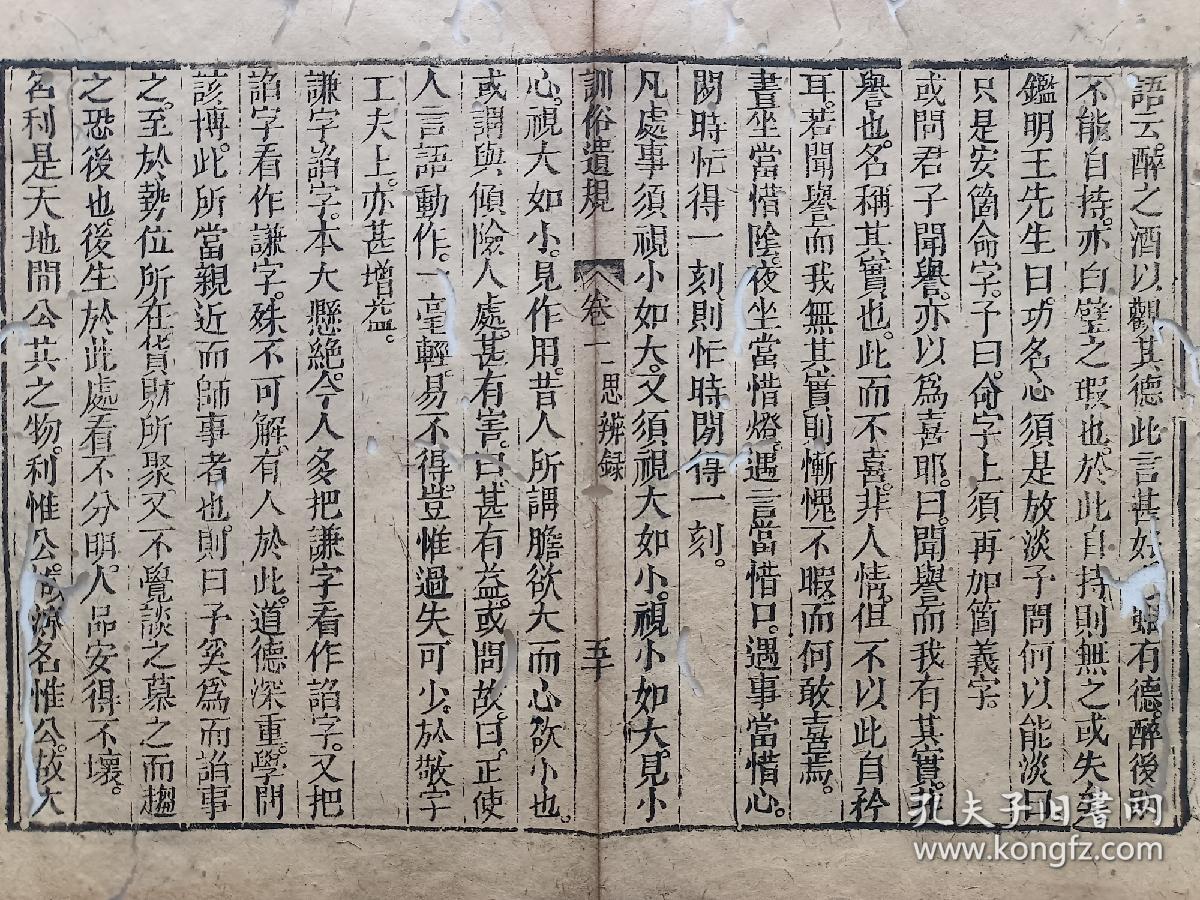 語云。醉之酒以觀其德此言甚好有德。醉後
不能自持。亦白璧之瑕也。於此自持則無之或失矣
鑑明王先生曰。功名心須是放淡予問何以能淡曰
只是安箇命字。予曰。命字上須再加箇義字。
或問君子聞譽。亦以爲喜耶。曰。聞譽而我有其實。我
譽也。名稱其實也。此而不喜。非人情。但不以此自矜
耳。若聞譽而我無其實則慚愧不暇而何敢喜焉。
晝坐當惜陰。夜坐當惜燈。遇言當惜口。遇事當惜心。
閒時忙得一刻則忙時閒得一刻。
凡處事須視小如大。又須視大如小。視小如大。見小
訓俗遺規
卷二 思辨録
五十
心。視大如小。見作用。昔人所謂膽欲大而心欲小也。
或謂與傾險人處。甚有害。曰。甚有益。或問故。曰。正使
人言語動作。一毫輕易不得。豈惟過失可少。於敬字
工夫上。亦甚增益。
謙字諂字。本大懸絕。今人多把謙字看作諂字。又把
諂字看作謙字。殊不可解。有人於此。道德深重。學問
該博。此所當親近而師事者也。則曰予奚爲而諂事
之。至於勢位所在貨財所聚又不覺談之慕之而趨
之恐後也。後生於此處看不分明。人品安得不壞。
名利是天地間公共之物。利惟公。故源名惟公。故大
孔夫子旧書网
www.kongfz.com